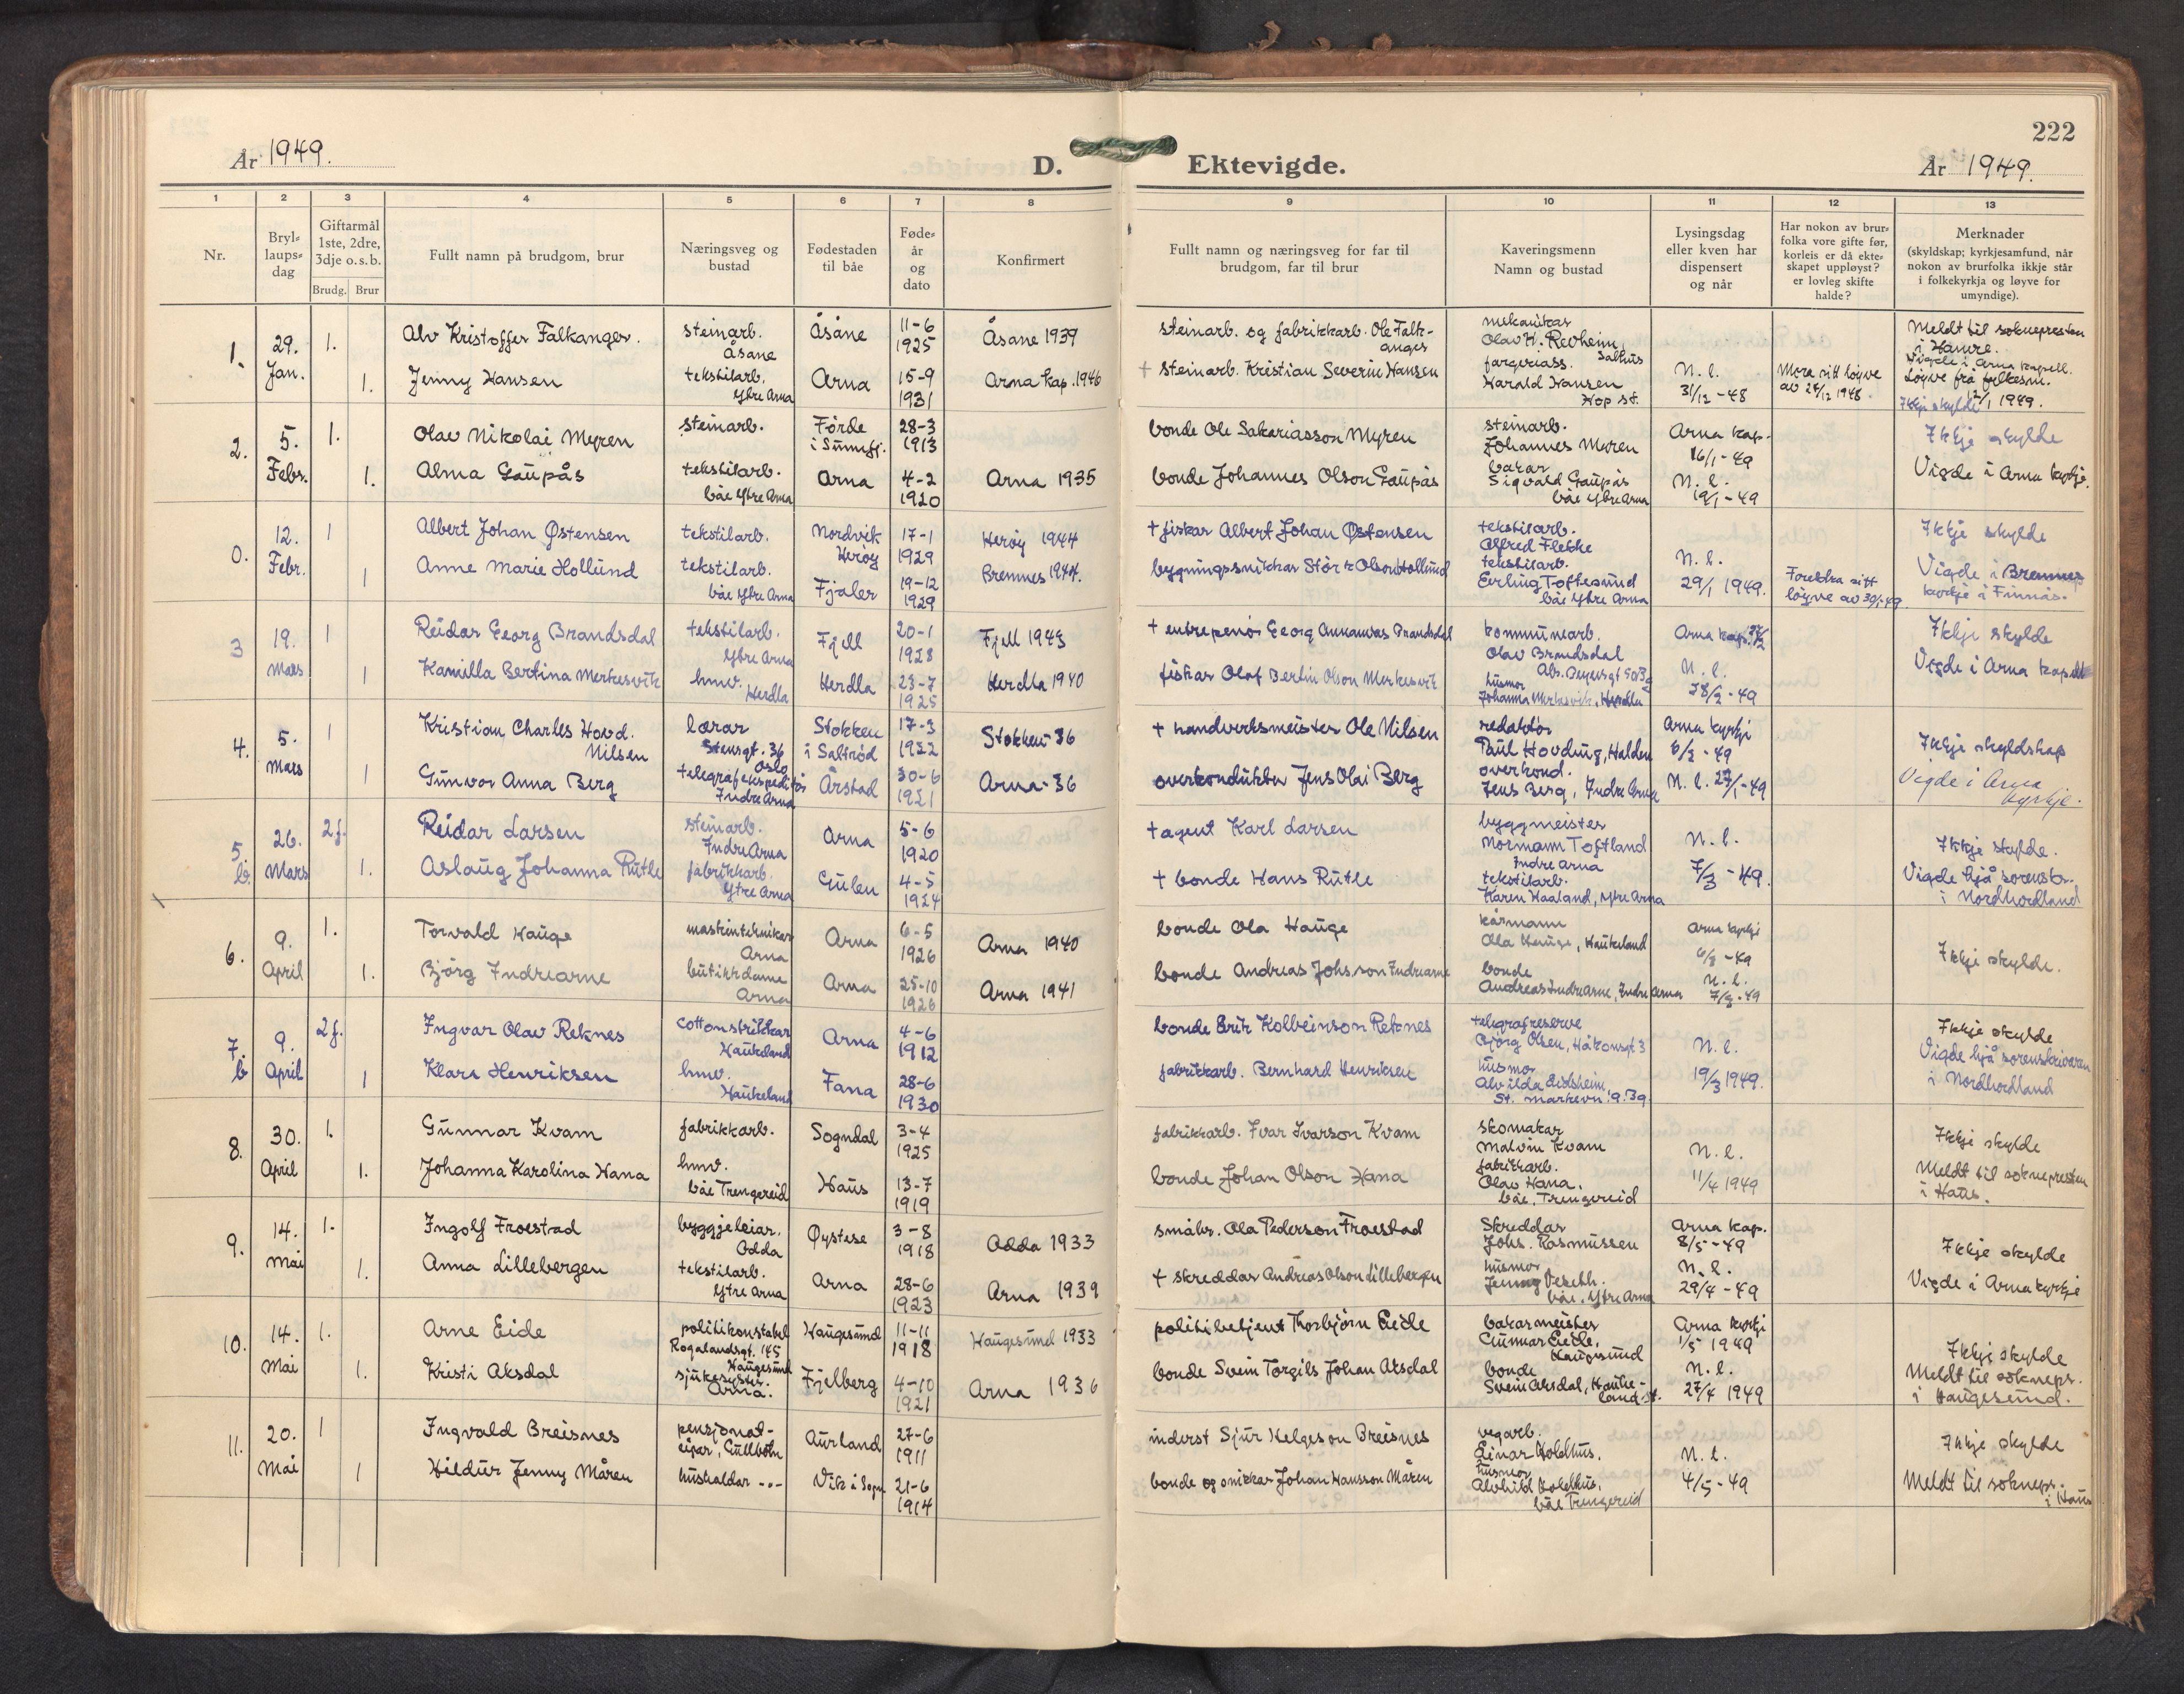 222
År 1949. D. Ektevigde. År 1949.
1 2 3 4 5 6 7 8 9 10 11 12 13
Nr.
Bryl-
laups-
dag
Giftarmål
1ste, 2dre,
3dje o.s.b.
Brudg. Brur
Fullt namn på brudgom, brur
Næringsveg og
bustad
Fødestaden
til båe
Føde-
år
og
dato
Konfirmert
Fullt namn og næringsveg for far til
brudgom, far til brur
Kaveringsmenn
Namn og bustad
Lysingsdag
eller kven har
dispensert
og når
Har nokon av brur-
folka vore gifte før,
korleis er då ekte-
skapet uppløyst?
er lovleg skifte
halde?
Merknader
(skyldskap; kyrkjesamfund, når
nokon av brurfolka ikkje står
i folkekyrkja og løyve for
umyndige).
1.
29.
Jan.
1.
1.
Alv Kristoffer Falkanger.
Jenny Hansen
steinarb.
Åsane
tekstilarb.
Ytre Arna
Åsane
Arna
11-6
1925
15-9
1931
Åsane 1939
Arna kap. 1946
steinarb. og fabrikkarb. Ole Falk-
anger
+ steinarb. Kristian Severin Hansen
mekanikar
Olav H. Revheim,
Salhus
fargeriass.
Harald Hansen
Hop st.
N. l.
31/12 -48
Mora sitt løyve
av 27/12 1948
Meldt til soknepresten
i Hamre.
Vigde i Arna kapell.
Løyve frå fylkesm.
12/1 1949.
Ikkje skylde
2.
5.
Febr.
1.
1.
Olav Nikolai Myren
Alma Gaupås
steinarb.
tekstilarb.
båe Ytre Arna
Førde
i Sunnfj.
Arna
28-3
1913
4-2
1920
Arna 1935
bonde Ole Sakariasson Myren
bonde Johannes Olson Gaupås
steinarb.
Johannes Myren
barar
Sigvald Gaupås
båe Ytre Arna
Arna kap.
16/1 - 49
N. l.
19/1 - 49
Ikkje skylde
Vigde i Arna kyrkje.
0.
12.
Febr.
1
1
Albert Johan Østensen
Anne Marie Hollund
tekstilarb.
tekstilarb.
båe Ytre Arna
Nordvik
Herøy
Fjaler
17-1
1929
19-12
1929
Herøy 1944
Bremnes 1944.
+ fiskar Albert Johan Østensen
bygningssnikkar Stór k Olson Hollund
tekstilarb.
Alfred Fletke
tekstilarb.
Erling Toftesund
båe Ytre Arna
N. l.
29/1 1949.
Foreldra sitt
løyve av 30/1-49.
Ikkje skylde
Vigde i Bremnes
kyrkje i Finnås.
3
19.
Mars
1
1
Reidar Georg Brandsdal
Kamilla Bertina Merkesvik
tekstilarb.
Ytre Arna
hmv.
Herdla
Fjell
Herdla
20-1
1928
23-7
1925
Fjell 1943
Herdla 1940
+ entrepenør Georg Annanias Brandsdal
fiskar Olaf Bertin Olson Merkesvik
kommunearb.
Olav Brandsdal
husmor
Johanna Merkesvik, Herdla
Arna kap.
N. l.
28/2 - 49
Ikkje skylde
Vigde i Arna kapell
4.
5.
Mars
1
1
Kristian Charles Hovd.
Nilsen
Gunvor Anna Berg
lærar
Stensgt. 36
Oslo
telegrafekspeditør
Indre Arna
Stokken
i Saltrød
Årstad
17-3
1922
30-6
1921
Stokken-36
Arna-36
+ handverksmeister Ole Nilsen
overkonduktør Jens Olai Berg
redaktør
Paul Hovding, Halden
overkond.
Jens Berg, Indre Arna
Arna kyrkje
6/2 - 49
N. l. 27/1-49
Ikkje skyldskap
Vigde i Arna
kyrkje.
5
b.
26.
Mars
2f.
1.
Reidar Larsen
Aslaug Johanna Rutle
steinarb.
Indre Arna
fabrikkarb.
Ytre Arna
Arna
Gulen
5-6
1920
4-5
1924
+ agent Karl Larsen
+ bonde Hans Rutle
byggmeister
Normann Toftland
Indre Arna
tekstilarb.
Karen Haaland, Ytre Arna
N. l.
7/3 - 49.
Ikkje skylde.
Vigde hjå sorenskr.
i Nordhordland
6.
9.
April
1.
1.
Torvald Hauge
Bjørg Indrearne
maskintekniker
Arna
butikkdame
Arna
Arna
Arna
6-5
1926
25-10
1926
Arna 1940
Arna 1941
bonde Ola Hauge
bonde Andreas Johsson Indrearne
kårmann
Ola Hauge, Haukeland
bonde
Andreas Indrearne, Indre Arna
Arna kyrkje
6/3 - 49
N. l.
7/3 - 49
Ikkje skylde.
7
b
9.
April
2f.
1
Ingvar Olav Reknes
Klara Henriksen
cottonstrikkar
Haukeland
hmv.
Haukeland
Arna
Fana
4-6
1912
28-6
1930
bonde Erik Kolbeinson Reknes
fabrikkarb. Bernhard Henriksen
telegrafreserve
Bjørg Olsen, Håkonsgt. 3
husmor
Alvilda Eidsheim,
St. Markevn. 9. Bg
N. l.
19/3 1949.
Ikkje skylde
Vigde hjå sorenskriveren
i Nordhordland
8.
30.
April
1.
1.
Gunnar Kvam
Johanna Karolina Hana
fabrikkarb.
hmv.
båe Trengereid
Sogndal
Haus
3-4
1925
13-7
1919
fabrikkarb. Ivar Ivarson Kvam
bonde Johan Olson Hana
skomakar
Malvin Kvam
fabrikkarb.
Olav Hana.
båe, Trengereid
N. l.
11/4 1949
Ikkje skylde
Meldt til soknepresten
i Haus.
9.
14.
Mai
1.
1.
Ingolf Froestad
Anna Lillebergen
byggjeleiar.
Odda
tekstilarb.
Ytre Arna
Øystese
Arna
3-8
1918
28-6
1923
Odda 1933
Arna 1939
småbr. Ola Pederson Froestad
+ skreddar Andreas Olson Lillebergen
Skreddar
Johs. Rasmussen
husmor
båe, Ytre Arna
Arna kap.
8/5 - 49
N. l.
29/4 - 49
Ikkje skylde
Vigde i Arna kyrkje
10.
14.
Mai
1.
1.
Arne Eide
Kristi Aksdal
politikonstabel
Rogalandsgt. 145
Haugesund
sjukesyster.
Arna.
Haugesund
Fjelberg
11-11
1918
4-10
1921
Haugesund 1933
Arna 1936
politibetjent Thorbjörn Eide
bonde Svein Torgils Johan Aksdal
bakarmeister
Gunnar Eide,
Haugesund
bonde
Svein Aksdal, Hauke-
land st.
Arna kyrkje
1/5 1949
N. l.
27/4 1949
Ikkje skylde
Meldt til sokneps.
i Haugesund.
11.
20.
Mai
1
1
Ingvald Breisnes
Hildur Jenny Måren
pensjonat-
eigar, Gullbotn
hushaldar -"-
Aurland
Vik i Sogn
27-6
1911
21-6
1914
inderst Sjur Helgeson Breisnes
bonde og snikkar Johan Hansson Måren
vegarb.
Einar Holdhus.
husmor
Alvhild Holdhus,
båe Trengereid
N. l.
4/5 - 49
Ikkje skylde
Meldt til soknepr.
i Haus